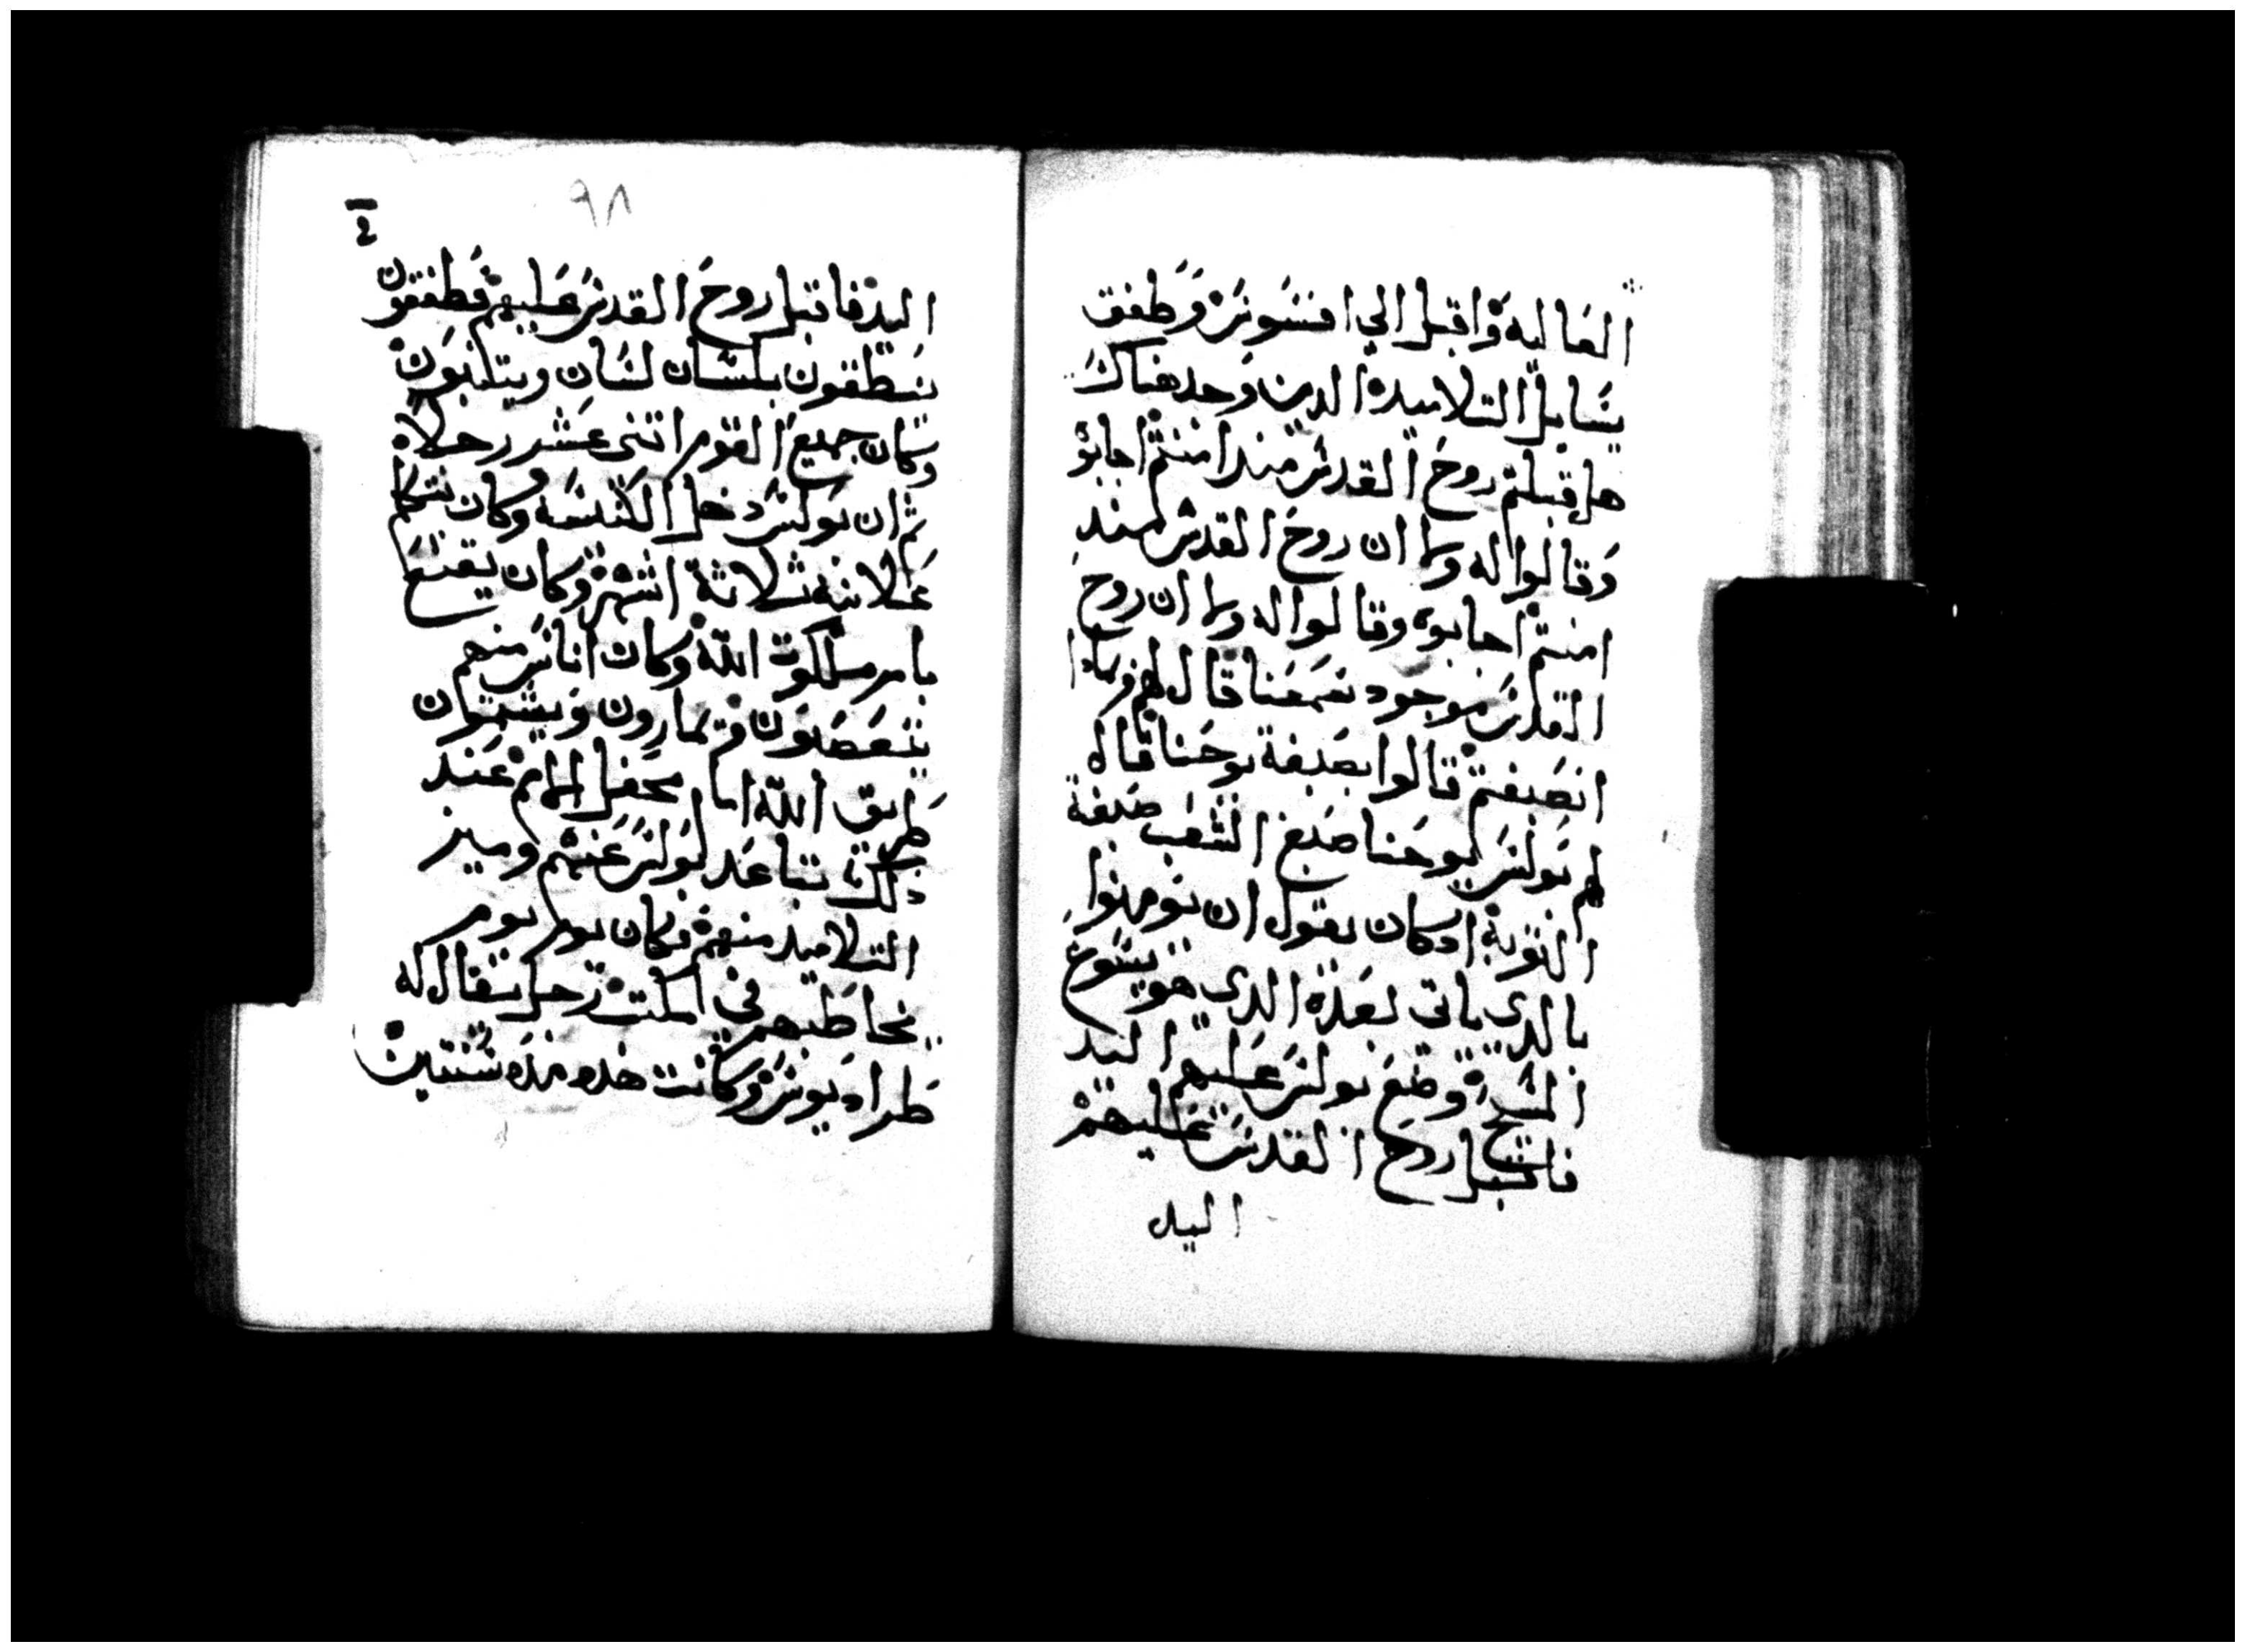 العاليه واقبل الي افسوس وطفق
يسايل التلاميده الدين وجد هناك
هل قبلتم روح القدس مند امنتم اجابو
وقالوا له ولا ان روح القدس مند
امنتم اجابوه وقالوا له ولا ان روح
القدس موجود سمعنا قال لهم فبمادا
انصبغتم قالوا بصبغة يوحنا قال
لهم بولس يوحنا صبغ الشعب صبغة
التوبة ادكان يقول ان تومنوا
بالدي ياتي بعده الدي هو يسوع
المسيح وضع بولس عليهم اليد
فاقبل روح القدس عليهم
اليد
٩٨
اليد فاقبل روح القدس عليهم فطفقون
ينطقون بلسان لسان ويتنبون
وكان جميع القوم اتنى عشر رجلاه
ثم ان بولس دخل الكنسه وكان يتكلم
علانيه ثلاثة اشهر وكان يقنع
بامر ملكوت الله وكان اناس منهم
يتعصبون ويمارون ويشتمون
طريق الله امام محفل الامم عند
دلك تباعد بولس عنهم وميز
التلاميد منهم فكان يوم يوم
يخاطبهم في المكتب رجل يقال له
طرادیوس وكانت هذه مده سنتين